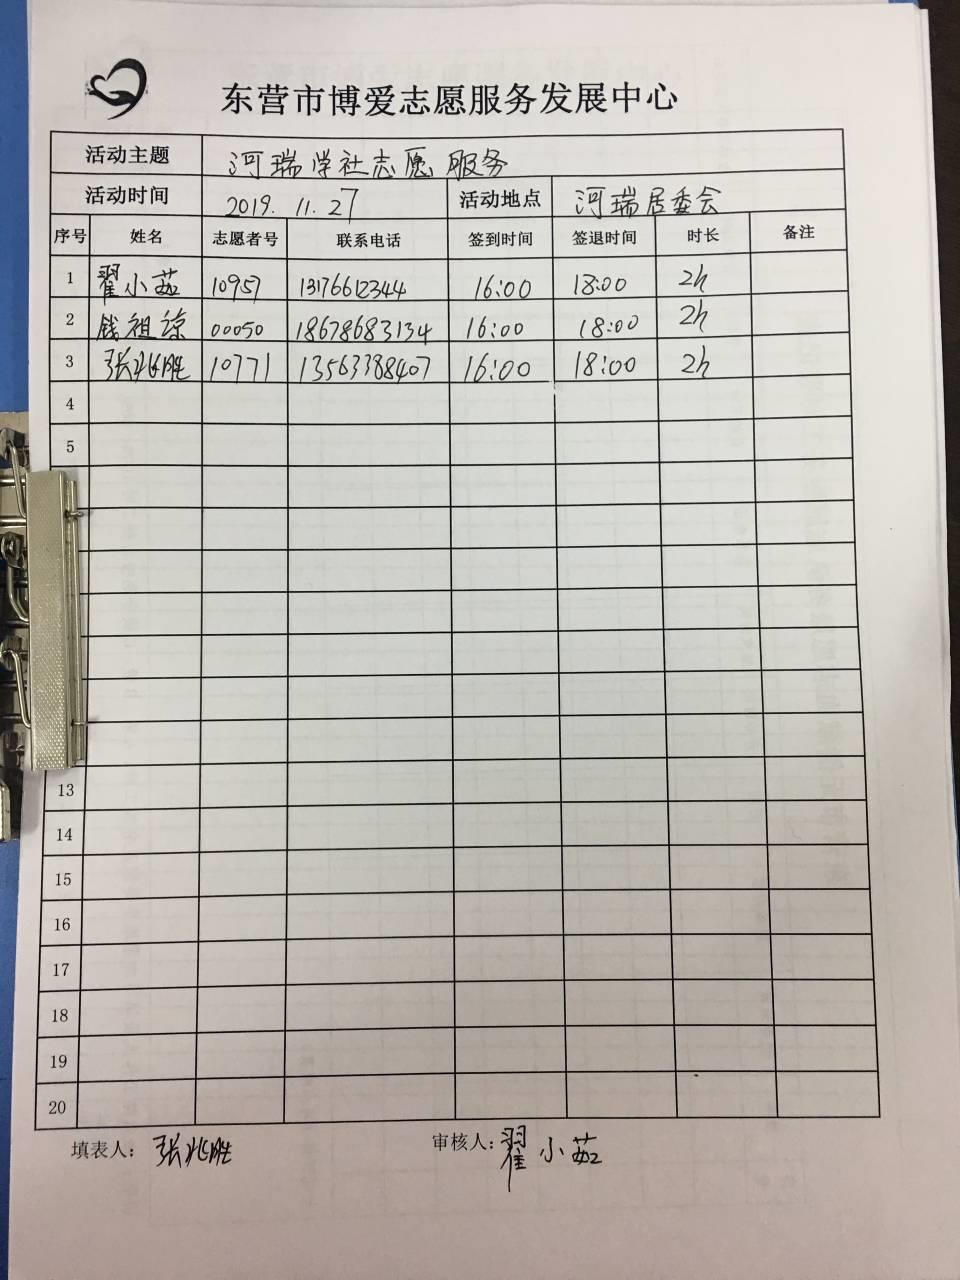 东营市博爱志愿服务发展中心
活动主题 河瑞学社志愿服务
活动时间 2019.11.27 活动地点 河瑞居委会
序号 姓名 志愿者号 联系电话 签到时间 签退时间 时长 备注
1 翟小茹 10957 13176612344 16:00 18:00 2h
2 钱祖琼 00050 18678683134 16:00 18:00 2h
3 张兆胜 10771 13563388407 16:00 18:00 2h
4
5
13
14
15
16
17
18
19
20
填表人：张兆胜 审核人：翟小茹